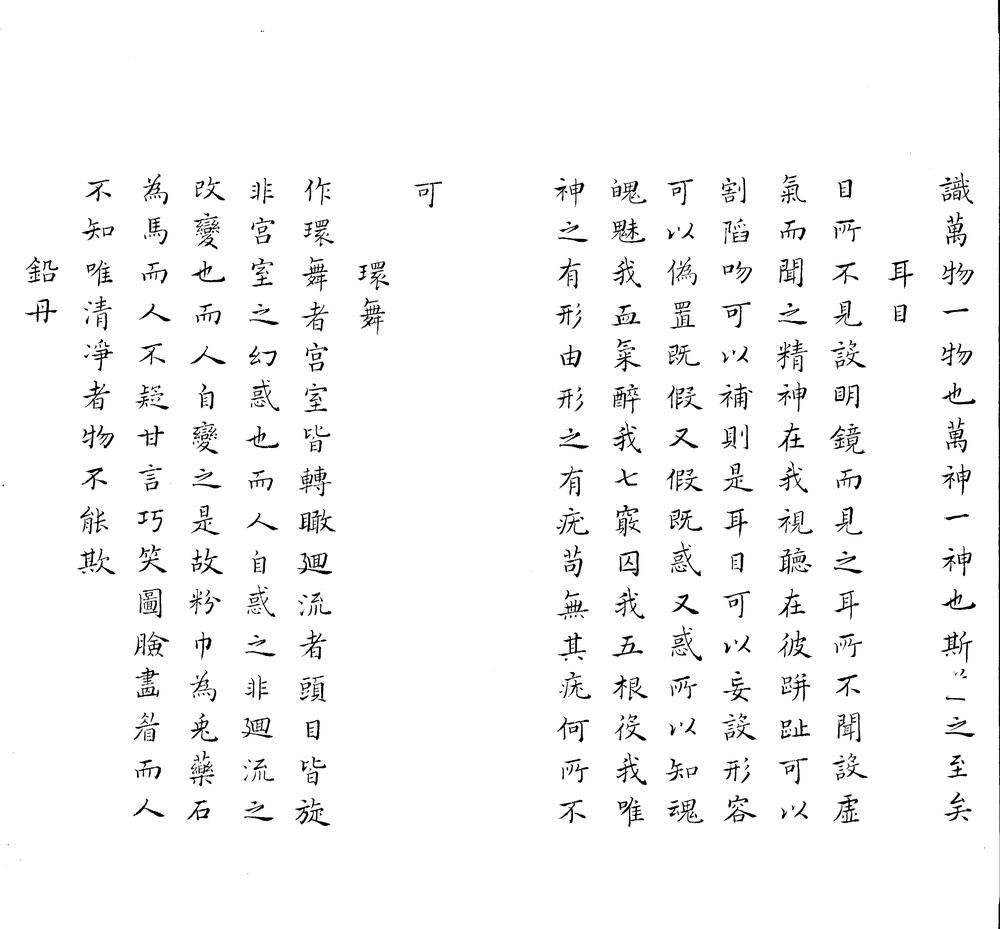 識萬物一物也萬神一神也斯以一之至矣
耳目
目所不見設明鏡而見之耳所不聞設虛
氣而聞之精神在我視聽在彼跰趾可以
割陷吻可以補則是耳目可以妄設形容
可以偽置既假又假既惑又惑所以知魂
魄魅我血氣醉我七竅囚我五根役我唯
神之有形由形之有疣苟無其疣何所不
可
環舞
作環舞者宮室皆轉瞰廻流者頭目皆旋
非宮室之幻惑也而人自惑之非廻流之
改變也而人自變之是故粉巾為兎藥石
為馬而人不疑甘言巧笑圖臉畫眉而人
不知唯清凈者物不能欺
鉛丹